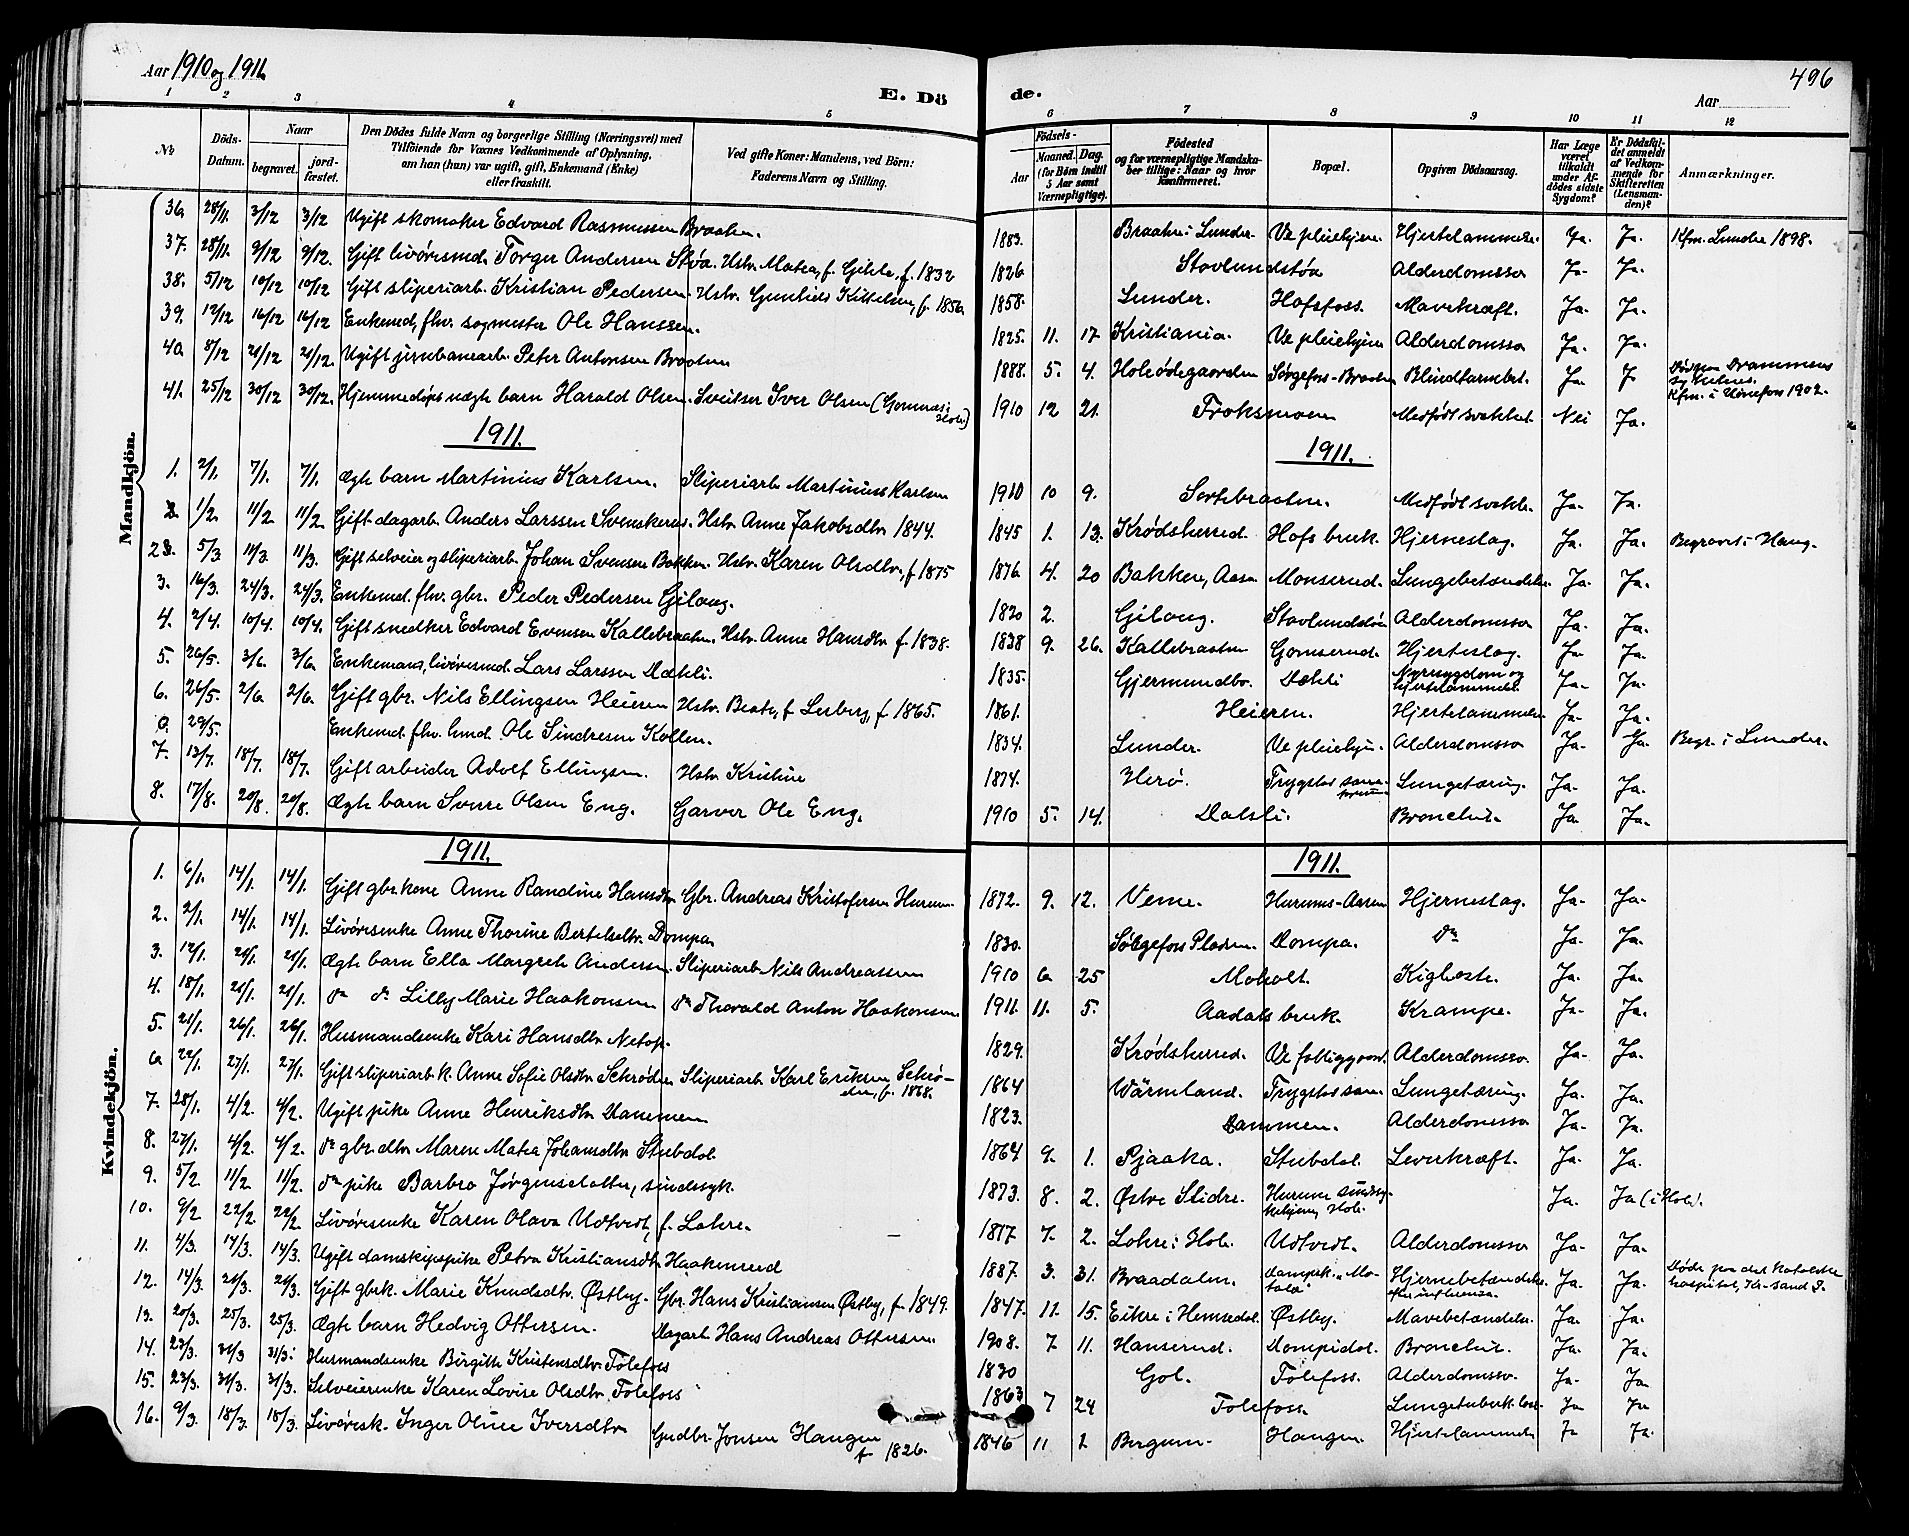 Aar 1910 og 1911.
E. Dö de.
Aar
496
1 2 3 4 5 6 7 8 9 10 11 12
No
Döds-Datum.
Naar
begravet.
jord-fæstet.
Den Dödes fulde Navn og borgerlige Stilling (Næringsvei) med
Tilföiende for Voxnes Vedkommende af Oplysning,
om han (hun) var ugift, gift, Enkemand (Enke)
eller fraskilt.
Ved gifte Koner: Mandens, ved Börn:
Faderens Navn og Stilling.
Födsels-
Aar
Maaned. Dag.
(for Börn indtil
5 Aar samt
Værnepligtige).
Födested
og for værnepligtige Mandska-
ber tillige: Naar og hvor
konfirmeret.
Bopæl.
Opgiven Dödsaarsag.
Har Læge
været
tilkaldt
under Af-
dödes sidste
Sygdom?
Er Dödsfal-
det anmeldt
af Vedkom-
mende for
Skifteretten
(Lensman-
den)?
Anmærkninger.
Mandkjön.
36. 28/11. 3/12 3/12 Ugift skomaker Edvard Rasmussen Braaten. 1883. Braaten i Lunder. Ve pleiehjem. Hjertelammelse. Ja. Ja. Kfm. Lunder 1898.
37. 28/11. 9/12 9/12. Gift livöresmd. Torger Andersen Støa. Hstr. Matea, f. Gihle, f. 1832 1826 Stavlundstøa Alderdomssv Ja- Ja.
38. 5/12 10/12 10/12 Gift sliperiarb. Kristian Pedersen. Hstr. Gunhild Kittelsen, f. 1856. 1858. Lunder. Hofsfoss. Mavekræft. Ja. Ja.
39. 12/12 16/12 16/12 Enkemd, fhv. sagmester Ole Hanssen. 1825. 11. 17. Kristiania. Ve pleiehjem Alderdomssv Ja- Ja.
40 8/12 21/12 21/12. Ugift jernbanearb. Peter Antonsen Braaten 1888. 5. 4. Hole ødegaarden Sørgefoss-Braaten Blindtarmbet. Ja. J Død paa Drammens sykehus. Kfm. i Hönefoss 1902.
41. 25/12 30/12 30/12. Hjemmedøpt uægte barn Harald Olsen. Sveitser Iver Olsen (Gomnæs i Hole) 1910 12 21. Froksmoen Medfødt svakhet. Nei Ja.
1911. 1911.
1. 2/1. 7/1. 7/1. Ægte barn Martinius Karlsen. Sliperiarb. Martinius Karlsen 1910 10 9. Sortebraaten. Medfødt svakh. Ja- Ja.
1/2. 11/2 11/2 Gift dagarb. Anders Larssen Svenskerud. Hstr. Anne Jakobsdtr. 1844. 1845 1. 13. Krødsherred. Hofs bruk. Hjerneslag. Ja. Ja. Begravet i Haug.
2. 5/3 11/3. 11/3. Gift selveier og sliperiarb. Johan Svensen Bakken. Hstr. Karen Olsdtr., f 1875 1876. 4. 20 Bakken, Aasa Monserud. Lungebetændelse. Ja- Ja.
3. 16/3. 24/3. 24/3. Enkemd. fhv. gbr. Peder Pedersen Gilaug. 1820 2. Gilaug. Stavlundstøa Alderdomssv Ja. Ja.
4. 2/4. 10/4. 10/4. Gift snedker Edvard Evensen Kallebraaten. Hstr. Anne Hansdtr. f. 1838. 1838 9. 26. Kallebraaten Gomserud. Hjerteslag. Ja Ja.
5. 26/5. 3/6. 3/6. Enkemans, livöresmd. Lars Larssen Dæhli. 1835. Gjermundbo. Dæhli Nyresygdom og hjertelammelse. Ja- Ja.
6. 26/5. 2/6. 2/6. Gift gbr. Nils Ellingsen Heieren Hstr. Beate, f. Lerberg, f 1865. 1861. Heieren. Hjertelammelse. Ja- Ja.
0. 29/5. Enkemd. fhv. hmd. Ole Sindresen Kollen. 1834. Lunder. Ve pleiehjem. Alderdomssv Ja- Ja. Begr. i Lunder.
7. 13/7. 18/7. 18/7. Gift arbeider Adolf Ellingsen. Hstr. Kristine 1874. Herö. Trygstad sanatorium Lungetæring. Ja- Ja.
8. 17/8. 20/8. 20/8. Ægte barn Sverre Olsen Eng. Garver Ole Eng. 1910 5. 14. Dalsli. Bronchit. Ja. Ja.
Kvindekjön.
1911. 1911.
1. 6/1. 14/1. 14/1. Gift gbr.kone Anne Randine Hansdtr. Gbr. Andreas Kristofersen Hurum 1872. 9. 12. Veme. Hurums-Aasen Hjerneslag. Ja- Ja.
2. 2/1. 14/1. 14/1. Livöresenke Anne Thorine Bertelsdtr. Dompa 1830. Sörgefoss Pladsen. Dompa. Do Ja- Ja.
3. 12/1. 21/1. 21/1. Ægte barn Ella Margreth Andersen. Sliperiarb. Nils Andreassen 1910 6 25 Moholt. Kighoste. Ja- Ja.
4. 18/1. 21/1. 21/1. do do Lilly Marie Haakonsen Do Thorvald Anton Haakonsen 1911. 11. 5. Aadals bruk. Krampe. Ja- Ja.
5. 21/1. 26/1. 26/1. Husmandsenke Kari Hansdtr. Netop. 1829. Krødsherred. Ve fattiggaard. Alderdomssv. Ja- Ja.
6 22/1. 27/1. 27/1. Gift sliperiarb.k. Anne Sofie Olsdtr Schrøder Sliperiarb. Karl Eriksen Schrøder, f. 1868. 1864 Wärmland. Trygstad san. Lungetæring. Ja- Ja.
7. 28/1. 4/2. 4/2. Ugift pike Anne Henriksdtr. Dammen 1823. Dammen. Alderdomssv Ja Ja.
8. 27/1. 4/2 4/2. do gbr.dtr. Maren Matea Johansdtr Stubdal 1864 9. 1. Pjaaka. Stubdal. Leverkræft. Ja- Ja.
9. 5/2 11/2 11/2. do pike Barbro Jørgensdatter, sindssyk. 1873. 8. 2. Østre Slidre. Hurum sindssykehjem, Hole. Ja. Ja (i Hole).
10. 9/2 22/2. 22/2. Livöresenke Karen Olava Udtvedt, f. Lohre. 1817 7. 2. Lohre i Hole. Udtvedt. Alderdomssv Ja- Ja.
11. 4/3. 14/3. 14/3. Ugift damskipspike Petra Kristiansdtr Haakenrud 1887. 3. 31. Braadalen. Dampsk. "Motala" Hjernebetændelse efter influenza. Ja- Ja. Døde paa det katolske hospital, Kr-sand S.
12. 14/3. 21/3. 21/3. Gift gbrk. Marie Knudsdtr. Østby. Gbr. Hans Kristiansen Østby, f. 1849. 1847. 11. 15. Eikre i Hemsedal. Østby. Mavebetændelse. Ja- Ja.
13. 20/3. 25/3. 25/3. Ægte barn Hedvig Ottersen. Dagarb. Hans Andreas Ottersen. 1908. 7 11. Hanserud. Dompidal. Bronchit. Ja- Ja.
14. 23/3. 31/3 31/3. Husmandsenke Birgitte Kristensdtr. Tolefoss 1830 Gol. Tolefoss. Alderdomssv. Ja- Ja.
15. 23/3. 31/3. 31/3. Selveierenke Karen Lovise Olsdtr. Tolefoss 1863 7 24 Tolefoss Lungetuberkulose. Ja Ja.
16. 9/3. 18/3. 18/3. Livøresk. Inger Oline Iversdtr Gudbr. Jonsen Haugen f 1826. 1846 11 2 Bergum. Haugen. Hjertelammelse Ja Ja.